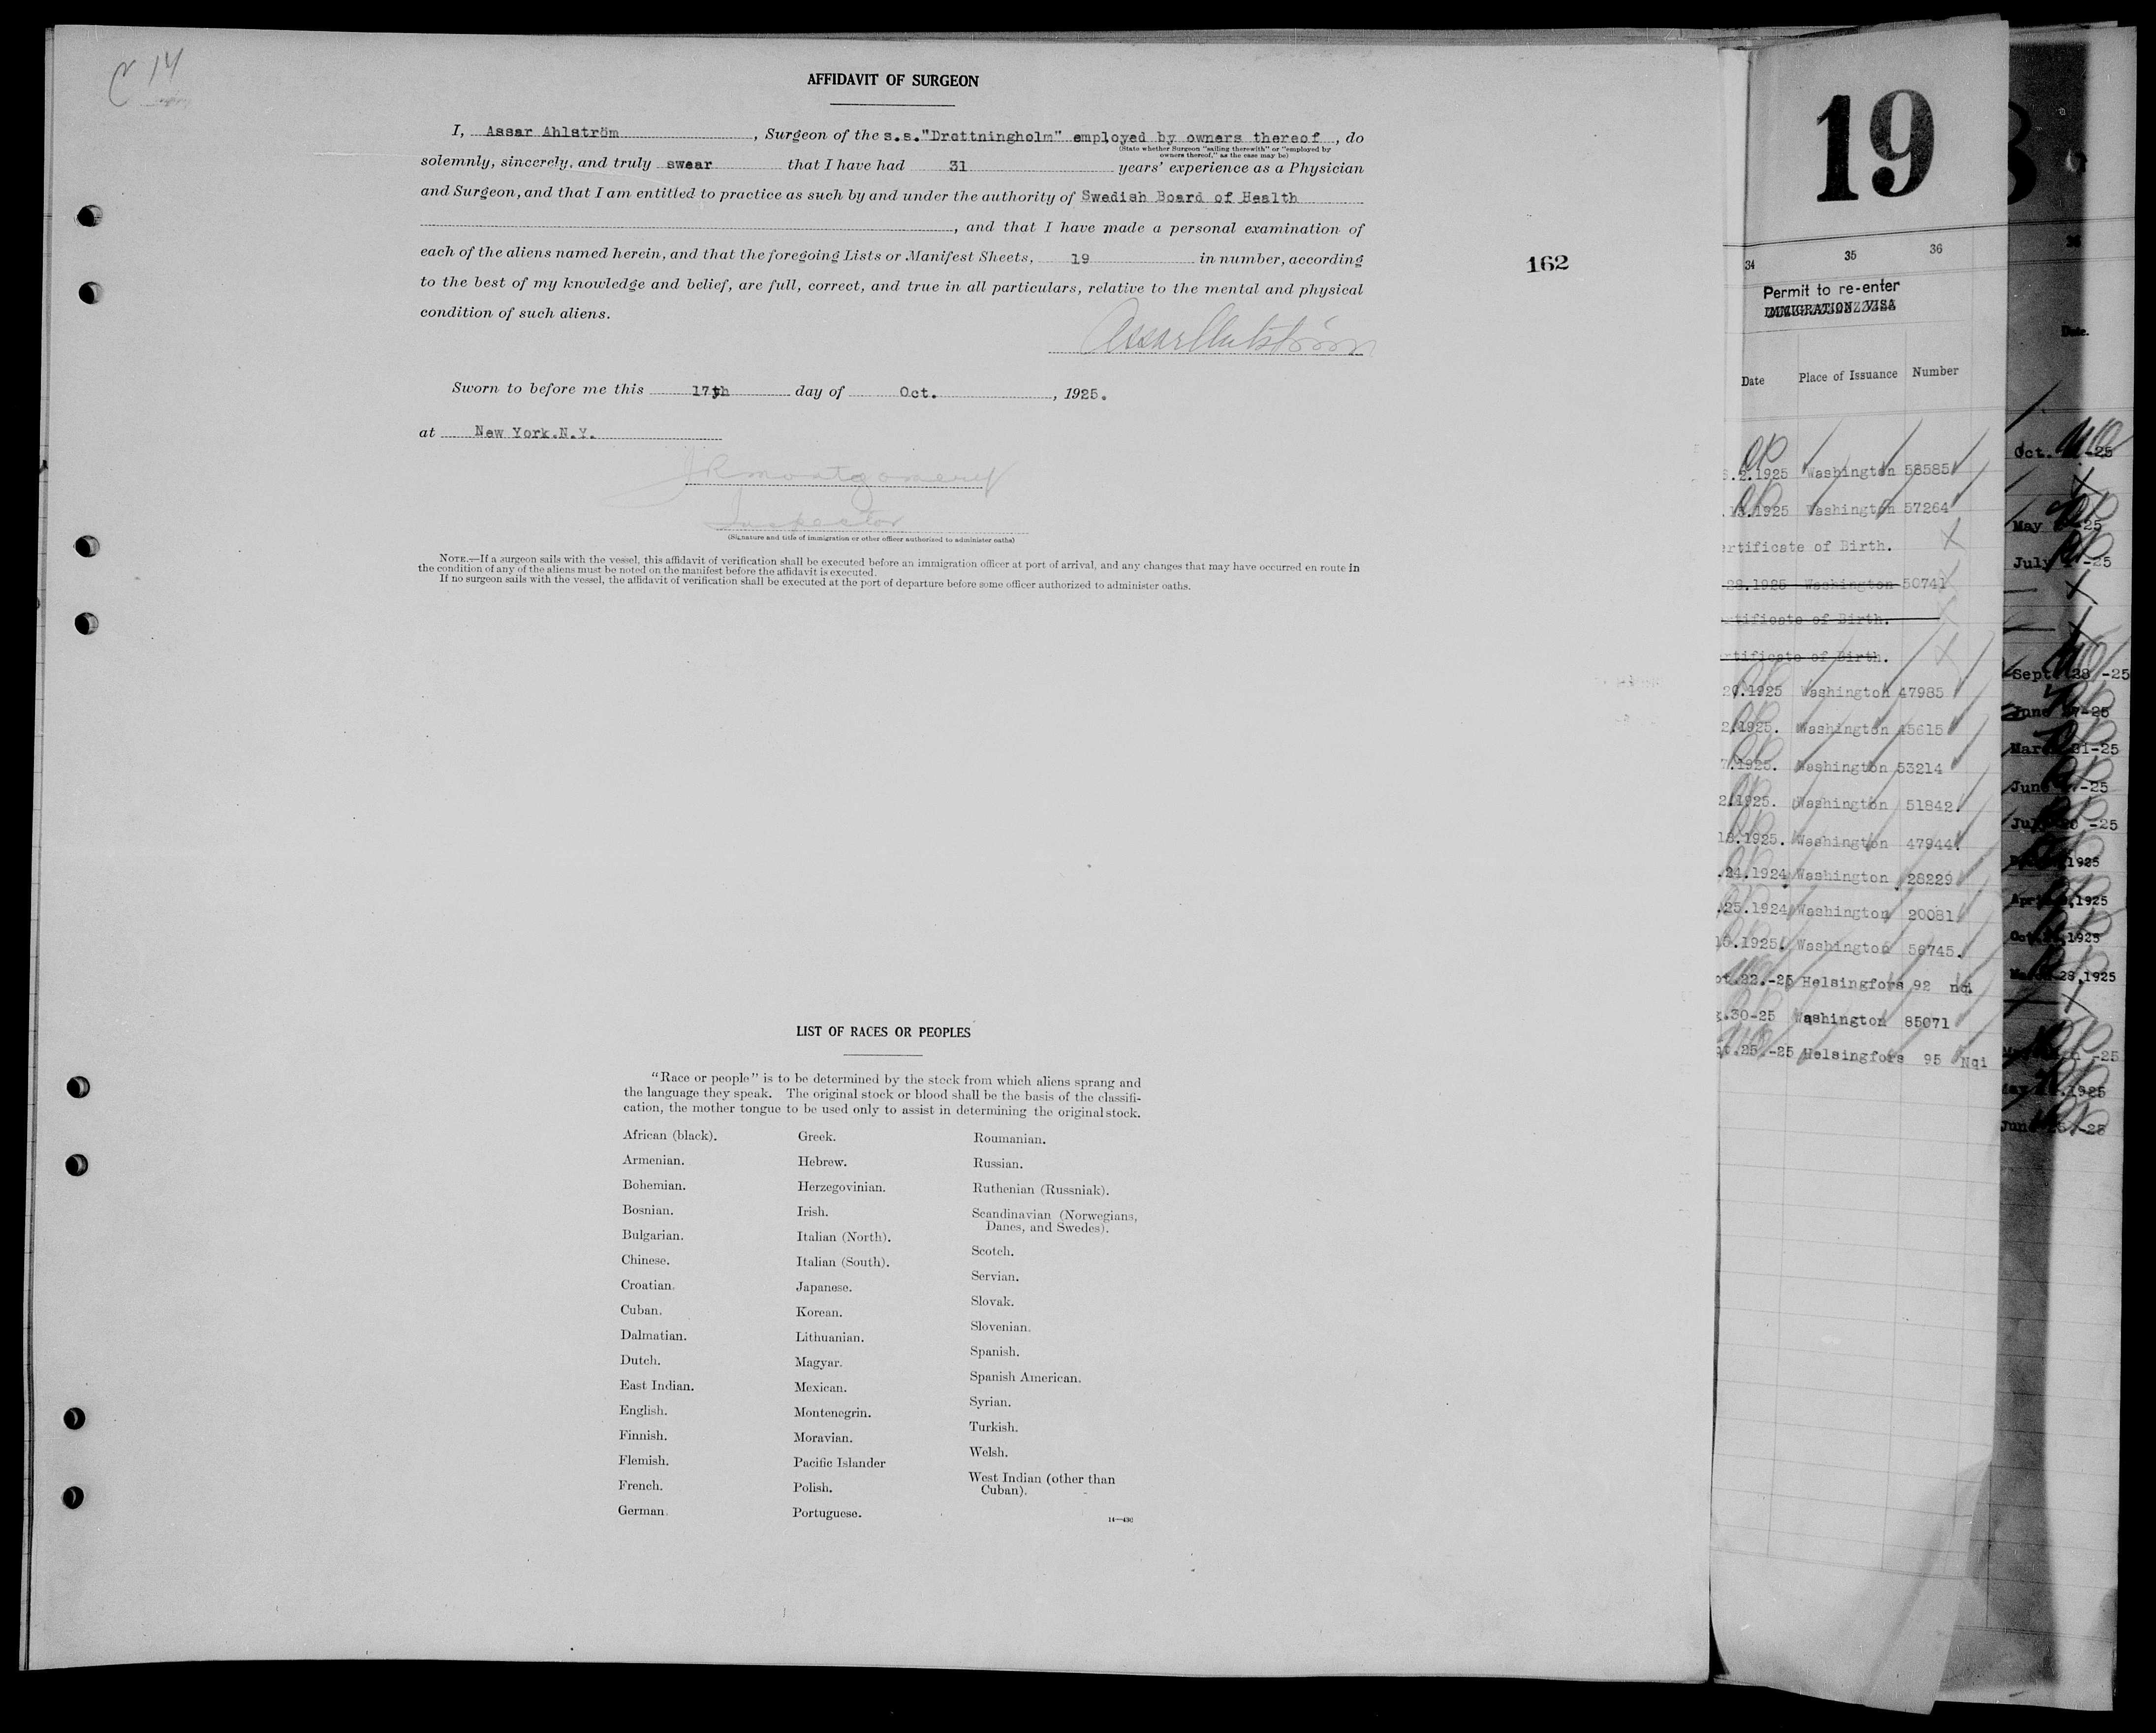 C 14
AFFIDAVIT OF SURGEON
I, Assar Ahlström, Surgeon of the s.s."Drottningholm" employed by owners thereof, do
(State whether Surgeon "sailing therewith" or "employed by
owners thereof," as the case may be)
solemnly, sincerely, and truly swear that I have had 31 years' experience as a Physician
and Surgeon, and that I am entitled to practice as such by and under the authority of Swedish Board of Health
, and that I have made a personal examination of
each of the aliens named herein, and that the foregoing Lists or Manifest Sheets, 19 in number, according
to the best of my knowledge and belief, are full, correct, and true in all particulars, relative to the mental and physical
condition of such aliens.
Assar Ahlström
Sworn to before me this 17th day of Oct., 1925.
at New York.N.Y.
J R Montgomery
Inspector
(Signature and title of immigration or other officer authorized to administer oaths)
NOTE.—If a surgeon sails with the vessel, this affidavit of verification shall be executed before an immigration officer at port of arrival, and any changes that may have occurred en route in
the condition of any of the aliens must be noted on the manifest before the affidavit is executed.
If no surgeon sails with the vessel, the affidavit of verification shall be executed at the port of departure before some officer authorized to administer oaths.
162
LIST OF RACES OR PEOPLES
"Race or people" is to be determined by the stock from which aliens sprang and
the language they speak. The original stock or blood shall be the basis of the classifi-
cation, the mother tongue to be used only to assist in determining the original stock.
African (black).
Armenian.
Bohemian.
Bosnian.
Bulgarian.
Chinese.
Croatian.
Cuban.
Dalmatian.
Dutch.
East Indian.
English.
Finnish.
Flemish.
French.
German.
Greek.
Hebrew.
Herzegovinian.
Irish.
Italian (North).
Italian (South).
Japanese.
Korean.
Lithuanian.
Magyar.
Mexican.
Montenegrin.
Moravian.
Pacific Islander
Polish.
Portuguese.
Roumanian.
Russian.
Ruthenian (Russniak).
Scandinavian (Norwegians,
Danes, and Swedes).
Scotch.
Servian.
Slovak.
Slovenian.
Spanish.
Spanish American.
Syrian.
Turkish.
Welsh.
West Indian (other than
Cuban).
14—430
19
34 35 36
Permit to re-enter
IMMIGRATION VISA
Date Place of Issuance Number
.2.1925 Washington 58585
.1925 Washington 57264
ertificate of Birth.
28.1925 Washington 50741
rtificate of Birth.
rtificate of Birth.
20.1925 Washington 47985
2.1925. Washington 45615
7.1925. Washington 53214
2.1925. Washington 51842.
18.1925. Washington 47944.
.24.1924 Washington 28229
.25.1924 Washington 20081
15.1925. Washington 56745.
pt.22.-25 Helsingfors 92 nqi
.30-25 Washington 85071
pt.25.-25 Helsingfors 95 Nqi
Date.
Oct. -25
May -25
July -25
Sept. 28 -25
June -25
March 31-25
June -25
July 20 -25
1925
April ,1925
Oct. ,1925
March 28,1925
-25
May .1925
June -25